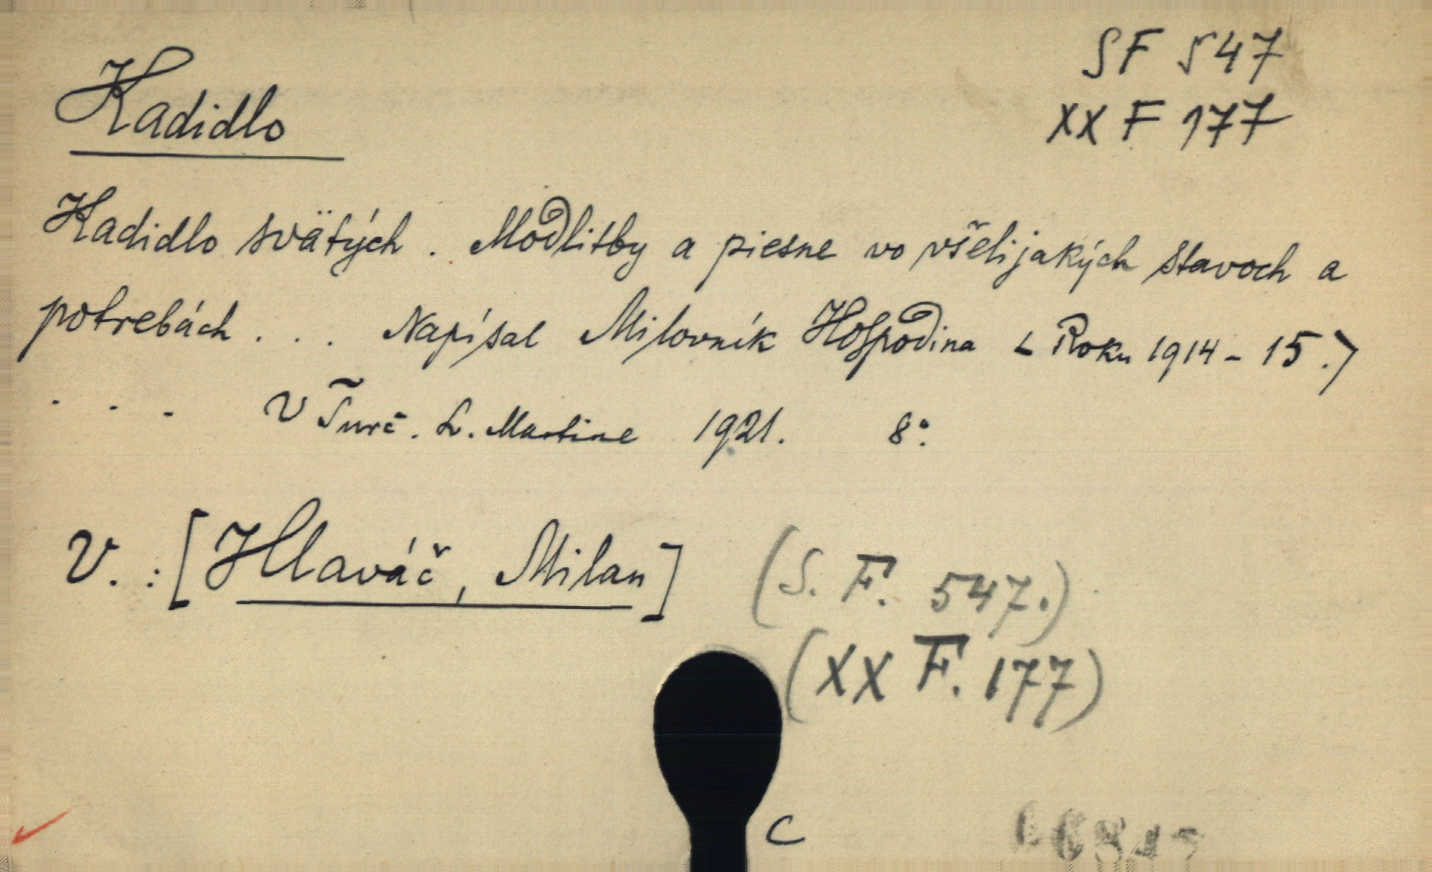 SF 547
XX F 177
Kadidlo
Kadidlo svätých. Modlitby a piesne vo všelijakých stavoch a
potrebách . . . Napísal Milovník Hospodina (Roku 1914-15.)
. . . V Turč. Sv. Martine 1921. 8°.
V. : [Hlaváč, Milan]
(S. F. 547.)
(XX F. 177)
C